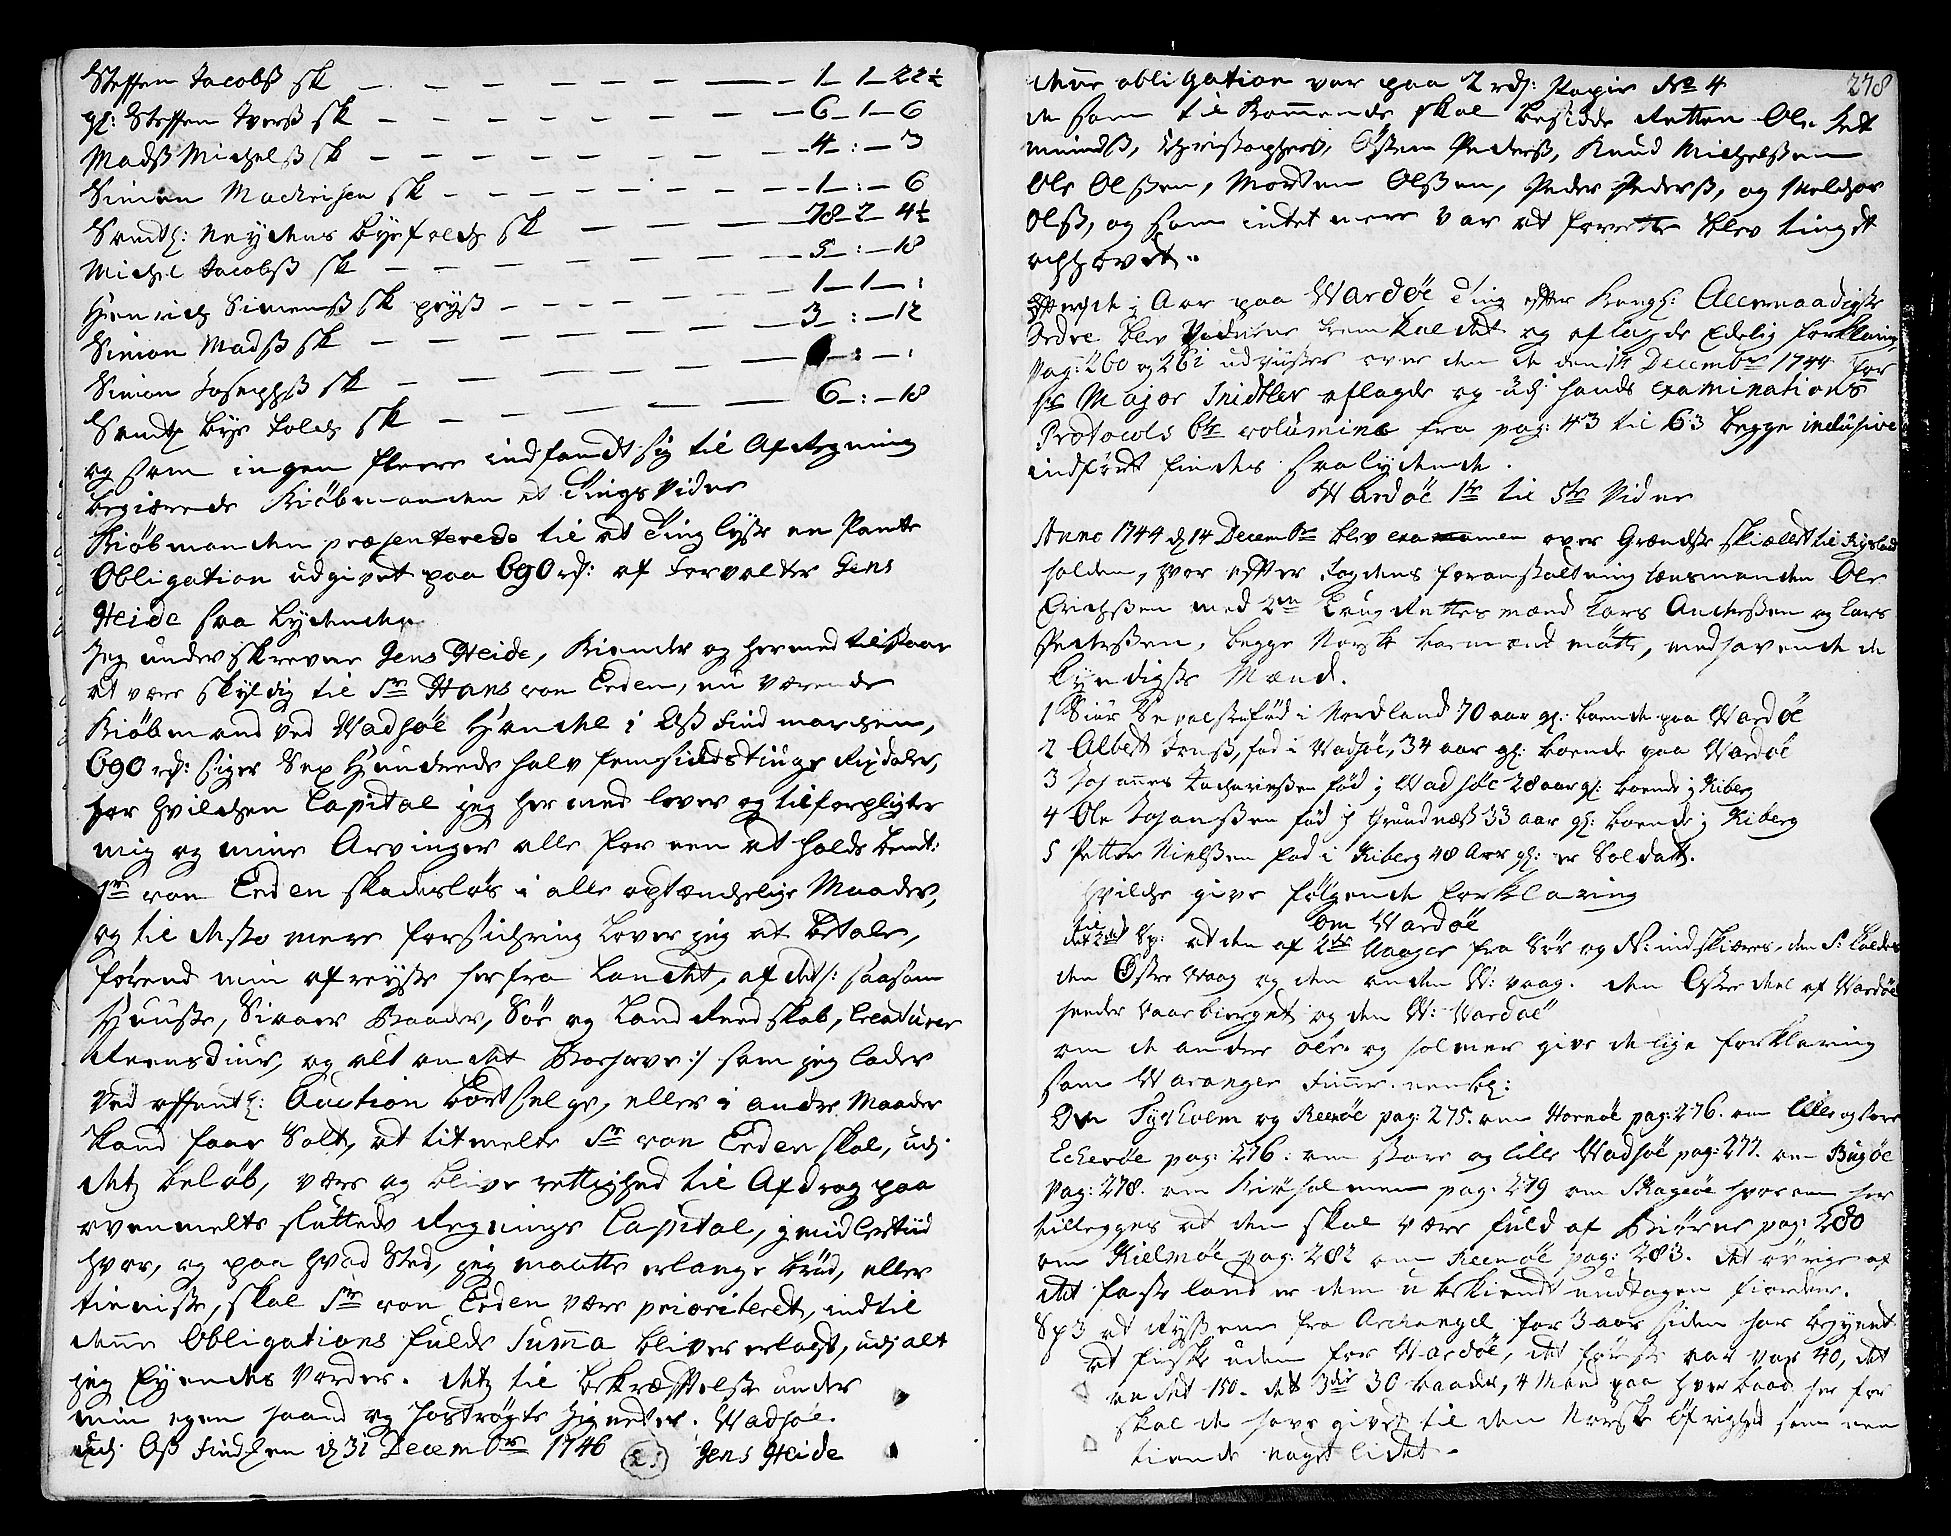 Steffen Jacobß sk — — — — — — — 1 — 1 — 22½
gl: Steffen Iverß sk — — — — — — 6 — 1 — 6
Madß Michelß sk — — — — — — — 4 — : — 3
Simon Mackeisen sk — — — — — — 1 — : — 6
Samtl: Neydens bysfolch sk — — — 78 — 2 — 4½
Michel Jacobß sk — — — — — — 5 — : — 18
Henrich Simenß sk — — — — 1 — 1 — :
Simon Madß sk — — — — — 3 — : — 12
Simon Josephß sk — — — — — : — :
Samtl bye folch sk — — — — 6 — : — 18
og som ingen fleere indfandt sig til Afregning
begierede Kiöbmanden et Tings Vidne
Kiöbmanden præsenterede til at Ting lyse en Pante
Obligation udgivet paa 690 rd: af Forvalter Jens
Heide saa Lydende
Jeg underskrevne Jens Heide, Kiender og hermed tilstaar
at være skyldig til Sr Hans von Erden, nu værende
Kiöbmand ved Wadsöe Handel i Ost Findmarchen,
690 rd: siger Sex Hundrede halv femsindstiuge Rixdaler,
for hvilchen Capital jeg her med lover og tilforpligter
mig og mine Arvinger alle for een at holde bemt:
Sr von Erden skadeslös i alle optænchelige Maader,
og til deste mere forsichring Lover jeg at betale,
förend min afreyse her fra Landet, af det: saasom
Huuse, Sivaer Baader, Söe og Land Reedskab, Creaturer
Reensdiur, og alt andet Boehave :/ som jeg lader
ved offentl: Auction bortselge, eller i andre Maader
kand faae Solt, at titmelte Sr von Erden skal, udj
dets belöb, være og blive rettighed til Afdrag paa
ovenmelte sluttede Regnings Capital, imidlertiid
hvor, og paa hvad Sted, jeg maatte erlange bröd, eller
tieniste, skal Sr von Erden være prioriteret, indtil
denne Obligations fulde Summa bliver erlagt, udj alt
jeg Eyendes vorder. dets til bekræfftelse under
min egen haand og hoströgte Signeter. Wadsöe
udj Ost Findhen d 31 Decembr 1746 (LS) Jens Heide
278
denne obligation var paa 2 rd: Papir No 4
de som tilkommende skal besidde Retten Ole Ket
mundß, Christophers, Östen Pederß, Knud Michelßen
Ole Olßen, Morten Olßen, Peder Pederß, og Melchior
Olß, og som intet mere var at forrette blev tinget
ophævet.
i Aar paa Wardöe Ting efter Kongl: Allernaadigste
Ordre blev Vidnene fremkaldet og aflagde Edelig forklaring
pag: 260 og 261 udviiser over den de den 14 Decembr 1744 for
hr Major Snidtler aflagde og udj hands examinations
Protocols 6te volumine fra pag: 43 til 63 begge inclusive
indfört findes saalydende.
Wardöe 1te til 5te Vidne
Anno 1744 d 14 Decembr blev examen over Grændse skiællet til Rysland
holden, hvor efter fogdens foranstaltning Lensmanden Ole
Erichßen med 2de Laug Rettes mænd Lars Anderßen og Lars
Pederßen, begge Norsk boemænd mötte, medhavende de
kyndigste Mænd.
1 Siur födt i Nordland 70 aar gl: boende paa Wardöe
2 Albert Jenß, föd i Vadsöe, 34 aar gl: boende paa Wardöe
3 Johannes Zachariæßen föd i Wadsöe 28 aar gl: boende i Kiberg
4 Ole Johanßen föd i Grundnæß 33 aar gl: boende i Kiberg
5 Petter Nielßen föd i Kiberg 48 Aar gl: er Soldatt.
hvilche give fölgende forklaring
om Wardöe
til det 2det Sp: at den af 2de Vaager fra Sör og N: indskiæres, den S: kaldes
den Östre Vaag og den anden W: vaag. den Östre deel af Wardöe
heeder Vaarbierget og den W: Wardoe
om de andre öer og holmer give de lige forklaring
som Waranger finner. nembl:
Om Tyvholm og Reenöe pag: 275. om Hornöe pag: 276. om lille og store
Eckeröe pag: 276: om store og lille Wadsöe pag: 277. om Bugöe
pag: 278. om Kirsholmen pag: 279 om Skageröe hvorom her
tillegges at den skal være fuld af Biörne pag: 280
om Kielmöe pag: 282 om Reenöe pag: 283. det övrige af
det faste land er dem ubekiendt undtagen fiorder.
Sp 3 at Rysßerne fra Archangel for 3 aar siden har begyndt
at fiske uden for Wardöe, det förste aar var 40, det
andet 150. det 3die 30 baader, 4 Mand paa hver baad her for
skal de have givet til den Norske öfrighed som een
tiende noget lidet.